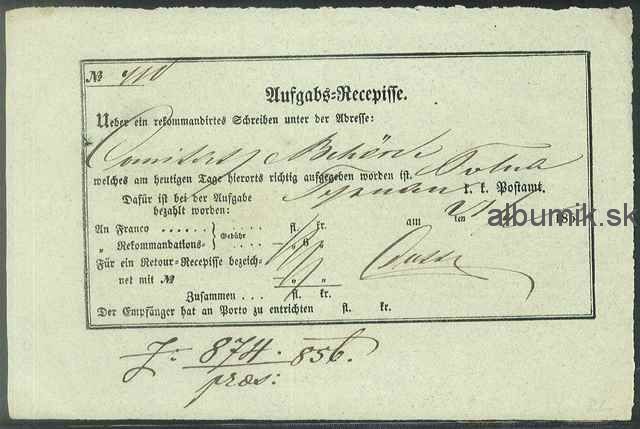 № 910
Aufgabs-Recepisse.
Ueber ein rekommandirtes Schreiben unter der Adresse:
Comitats Behörde Tolna
welches am heutigen Tage hierorts richtig aufgegeben worden ist.
Tyrnau k. k. Postamt.
Dafür ist bei der Aufgabe
bezahlt worden:
am ten 185
albumik.sk
An Franco . . . . . . fl. kr.
Gebühr
„ Rekommandations- „ 6 „
Für ein Retour-Recepisse bezeich-
net mit № „ „
Zusammen . . . fl. kr.
Der Empfänger hat an Porto zu entrichten fl. kr.
874 · 856.
præs: